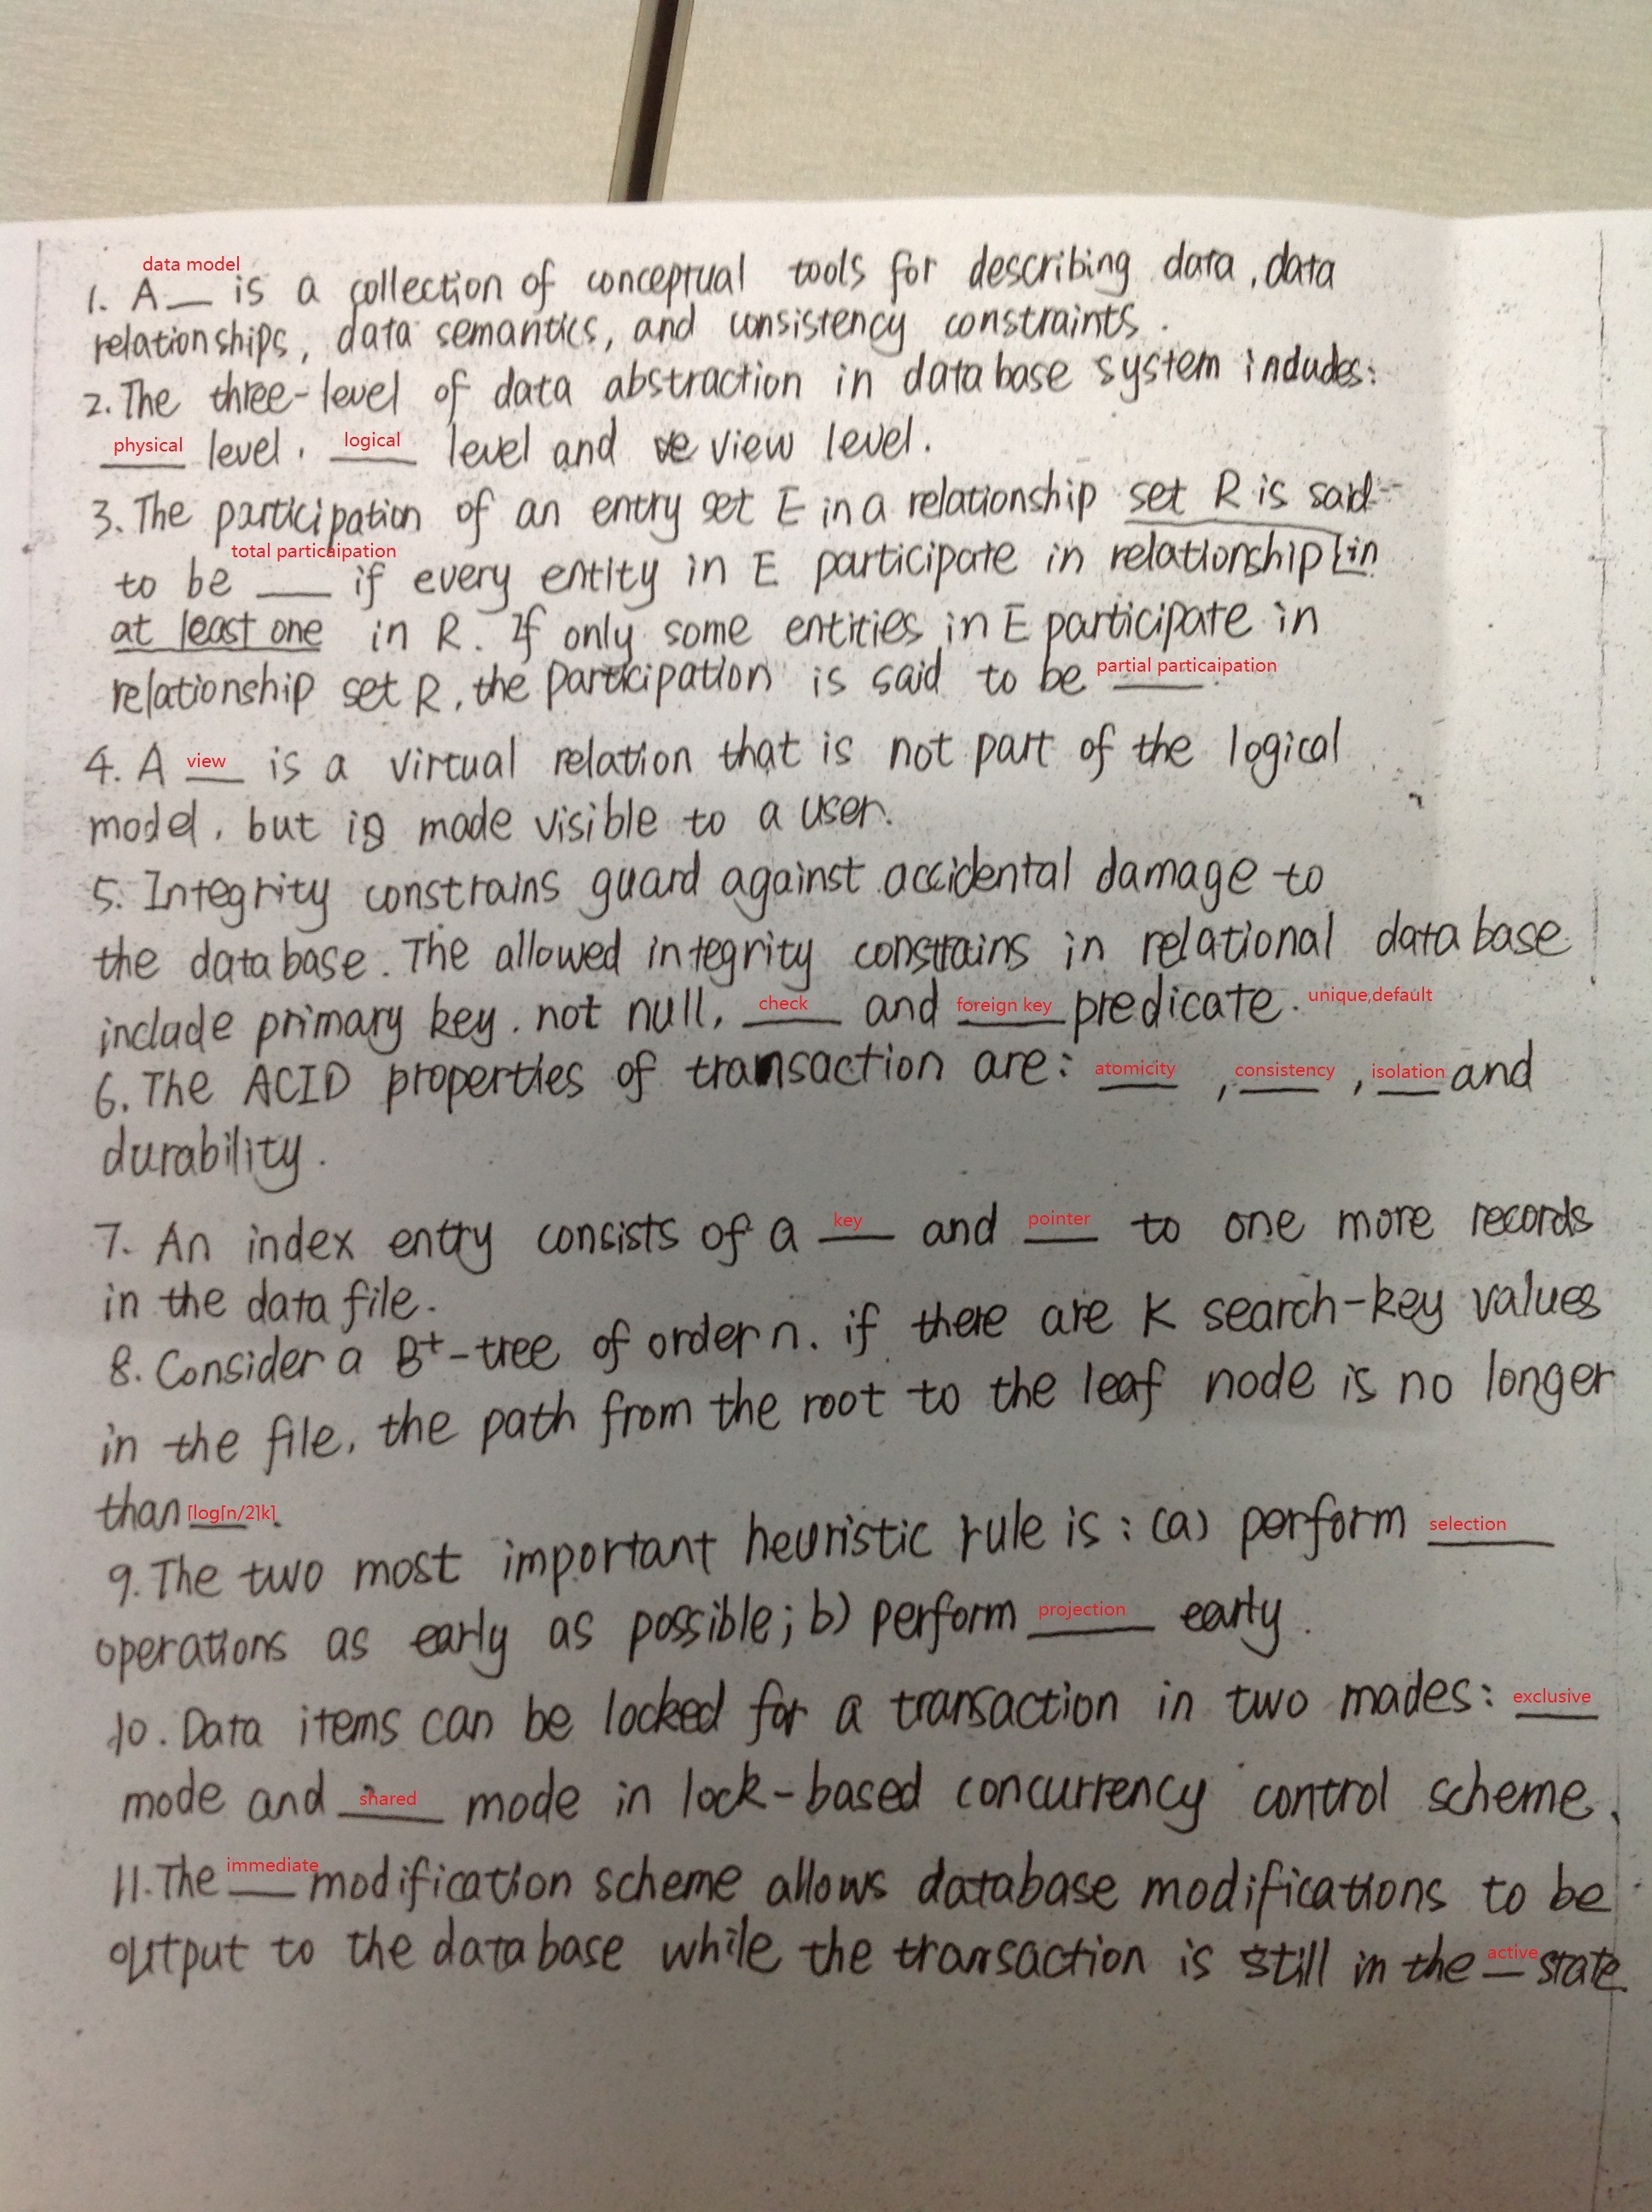 data model
1. A__ is a collection of conceptual tools for describing data, data
relationships, data semantics, and consistency constraints.
2. The three-level of data abstraction in database system includes:
physical level, logical level and ve view level.
3. The participation of an entry set E in a relationship set R is said
total particaipation
to be ___ if every entity in E participate in relationship [in
at least one in R. If only some entities in E participate in
relationship set R, the participation is said to be partial particaipation.
4. A view is a virtual relation that is not part of the logical
model, but is made visible to a user.
5. Integrity constrains guard against accidental damage to
the database. The allowed integrity constrains in relational database
include primary key, not null, check and foreign key predicate. unique,default
6. The ACID properties of transaction are: atomicity , consistency , isolation and
durability.
7. An index entry consists of a key and pointer to one more records
in the data file.
8. Consider a B+-tree of order n. if there are K search-key values
in the file, the path from the root to the leaf node is no longer
than ⌈log⌈n/2⌉k⌉.
9. The two most important heuristic rule is: (a) perform selection
operations as early as possible; b) perform projection early.
10. Data items can be locked for a transaction in two mades: exclusive
mode and shared mode in lock-based concurrency control scheme.
11. The immediate modification scheme allows database modifications to be
output to the database while the transaction is still in the active state